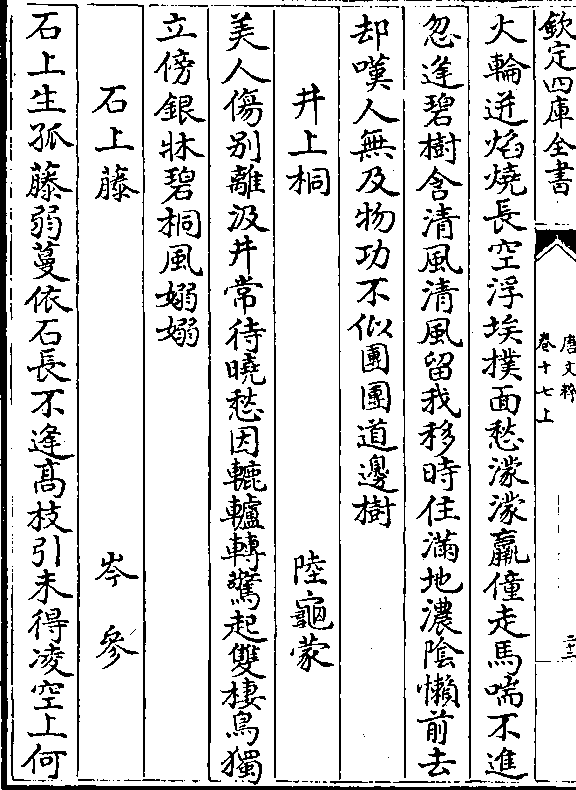 欽定四庫全書
唐文粹
卷十七上
二十二
火輪迸焰燒長空浮埃撲面愁濛濛羸僮走馬喘不進
忽逢碧樹含清風清風留我移時住滿地濃陰懶前去
却嘆人無及物功不似團團道邊樹
井上桐 陸龜蒙
美人傷別離汲井常待曉愁因轆轤轉驚起雙棲鳥獨
立傍銀牀碧桐風嫋嫋
石上藤 岑參
石上生孤藤弱蔓依石長不逢高枝引未得凌空上何